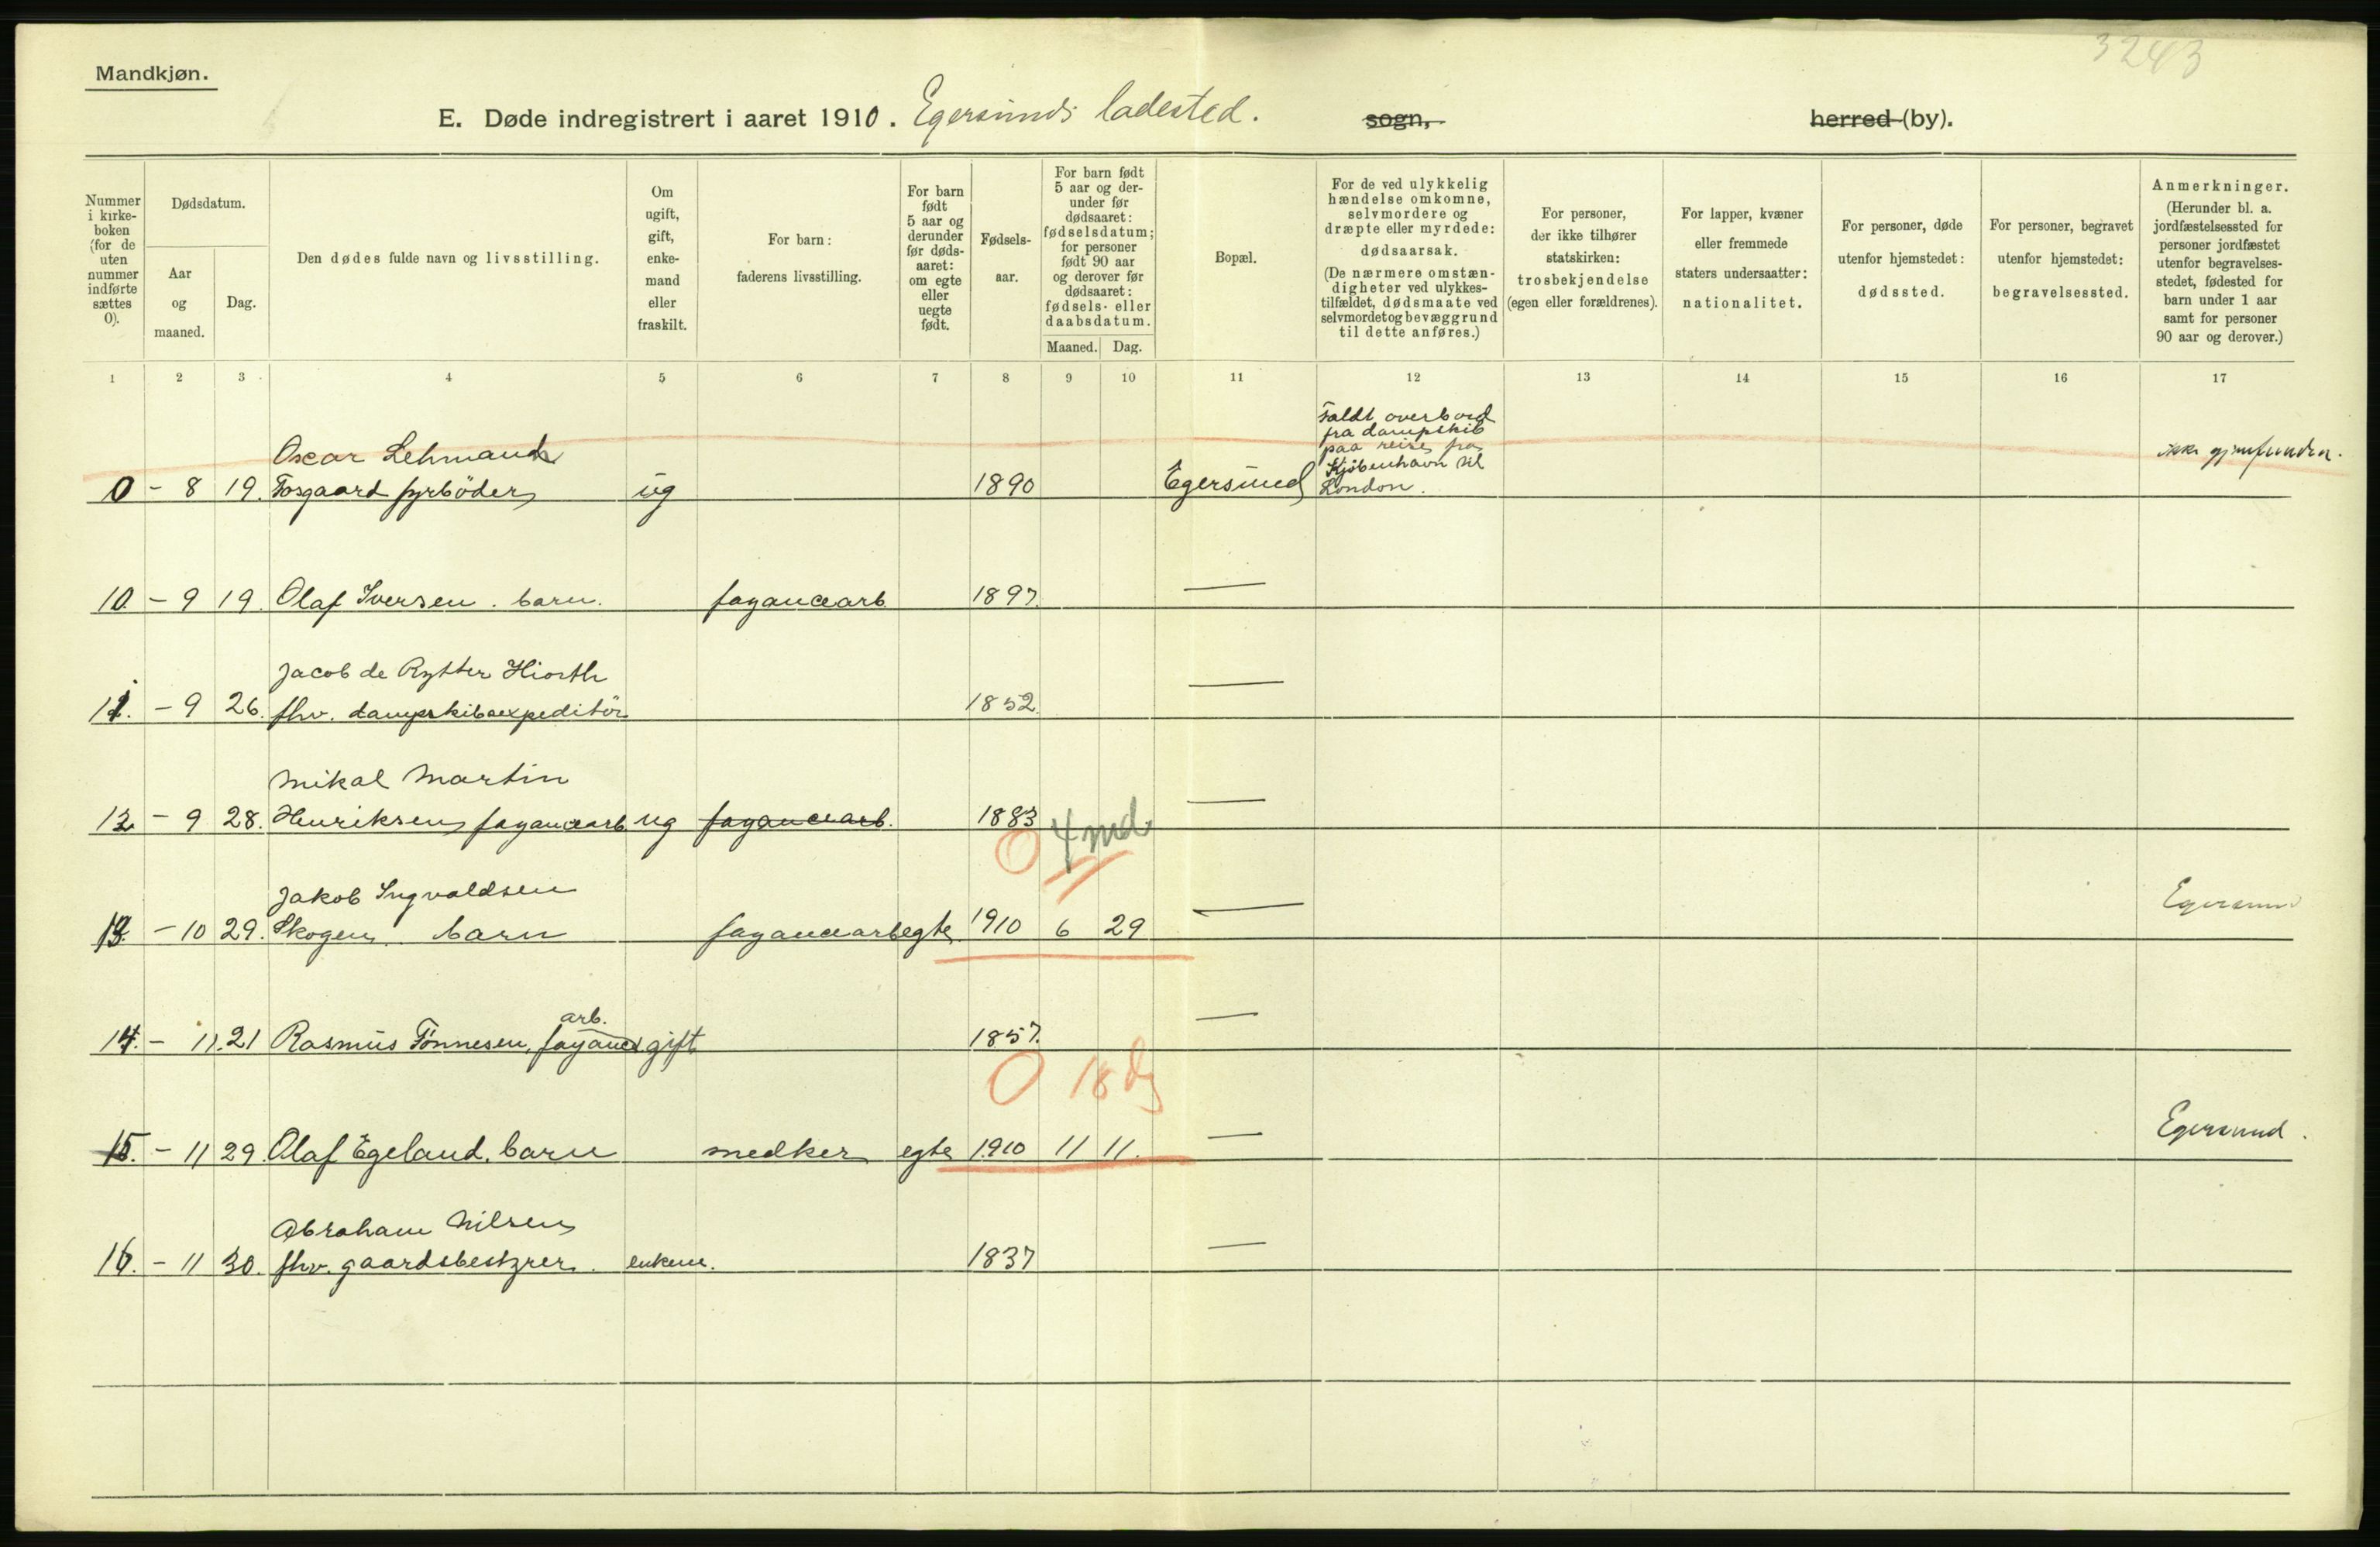 3243
Mandkjøn.
E. Døde indregistrert i aaret 1910. Egersunds ladested. sogn, herred (by).
Nummer i kirke-boken (for de uten nummer indførte sættes 0).
Dødsdatum.
Aar og maaned.
Dag.
Den dødes fulde navn og livsstilling.
Om ugift, gift, enke-mand eller fraskilt.
For barn: faderens livsstilling.
For barn født 5 aar og derunder før døds-aaret: om egte eller uegte født.
Fødsels-aar.
For barn født 5 aar og der-under før dødsaaret: fødselsdatum; for personer født 90 aar og derover før dødsaaret: fødsels- eller daabsdatum.
Maaned. Dag.
Bopæl.
For de ved ulykkelig hændelse omkomne, selvmordere og dræpte eller myrdede: dødsaarsak. (De nærmere omstæn-digheter ved ulykkes-tilfældet, dødsmaate ved selvmordet og bevæggrund til dette anføres.)
For personer, der ikke tilhører statskirken: trosbekjendelse (egen eller forældrenes).
For lapper, kvæner eller fremmede staters undersaatter: nationalitet.
For personer, døde utenfor hjemstedet: dødssted.
For personer, begravet utenfor hjemstedet: begravelsessted.
Anmerkninger. (Herunder bl. a. jordfæstelsessted for personer jordfæstet utenfor begravelses-stedet, fødested for barn under 1 aar samt for personer 90 aar og derover.)
1 2 3 4 5 6 7 8 9 10 11 12 13 14 15 16 17
Faldt overbord
fra dampskib
paa reise fra
Kjøbenhavn til
London.
Oscar Lehmand
0 - 8 19. Fosgaard fyrböder ug 1890 Egersund
10. - 9 19. Olaf Iversen. barn. fayancearb. 1897. —
Jacob de Rytter Hiorth
11. - 9 26. fhv. dampskibsexpeditör 1852. —
Mikal Martin
12. - 9 28. Henriksen fayancearb. ug fayancearb. 1883 —
0 4 md.
Jakob Ingvaldsen
13. - 10 29. Skogen. barn fayancearb egte 1910 6 29 — Egersund
arb.
14. - 11. 21 Rasmus Tönnesen, fayance gift 1857. —
0 18 dg
15. - 11 29. Olaf Egeland. barn medker egte 1910 11 11. — Egersund.
Abraham Nilsen
16. - 11 30. fhv. gaardsbestyrer. enkem. 1837 —